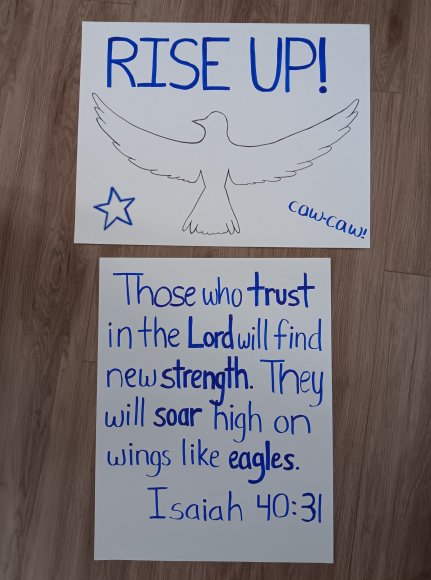 RISE UP!
caw-caw!
Those who trust
in the Lord will find
new strength. They
will soar high on
wings like eagles.
Isaiah 40:31